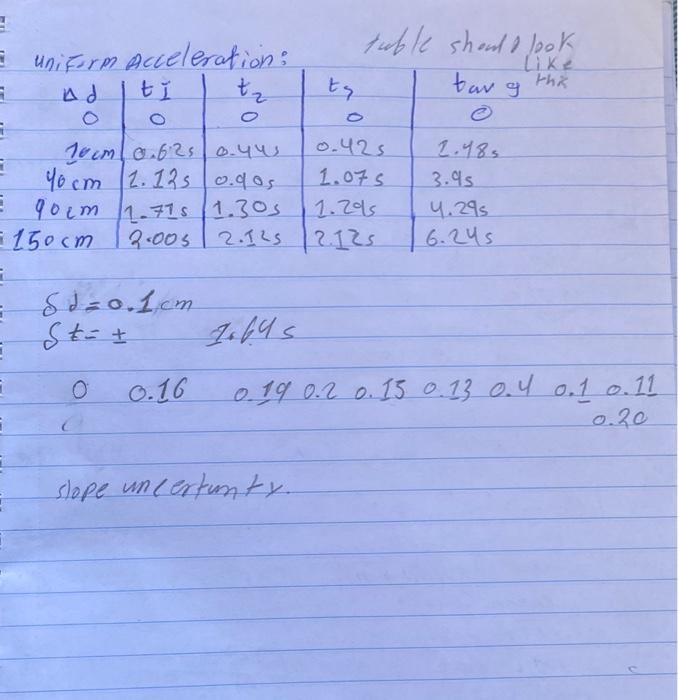 table should look
uniform Acceleration: like
Δd t1 t2 t3 tavg the
0 0 0 0 0
10cm 0.62s 0.44s 0.42s 1.48s
40cm 1.12s 0.90s 1.07s 3.9s
90cm 1.71s 1.30s 1.29s 4.29s
150cm 2.00s 2.12s 2.12s 6.24s
δd=0.1cm
δt=± 1.64s
0 0.16 0.19 0.2 0.15 0.13 0.4 0.1 0.11
0.20
slope uncertunty.